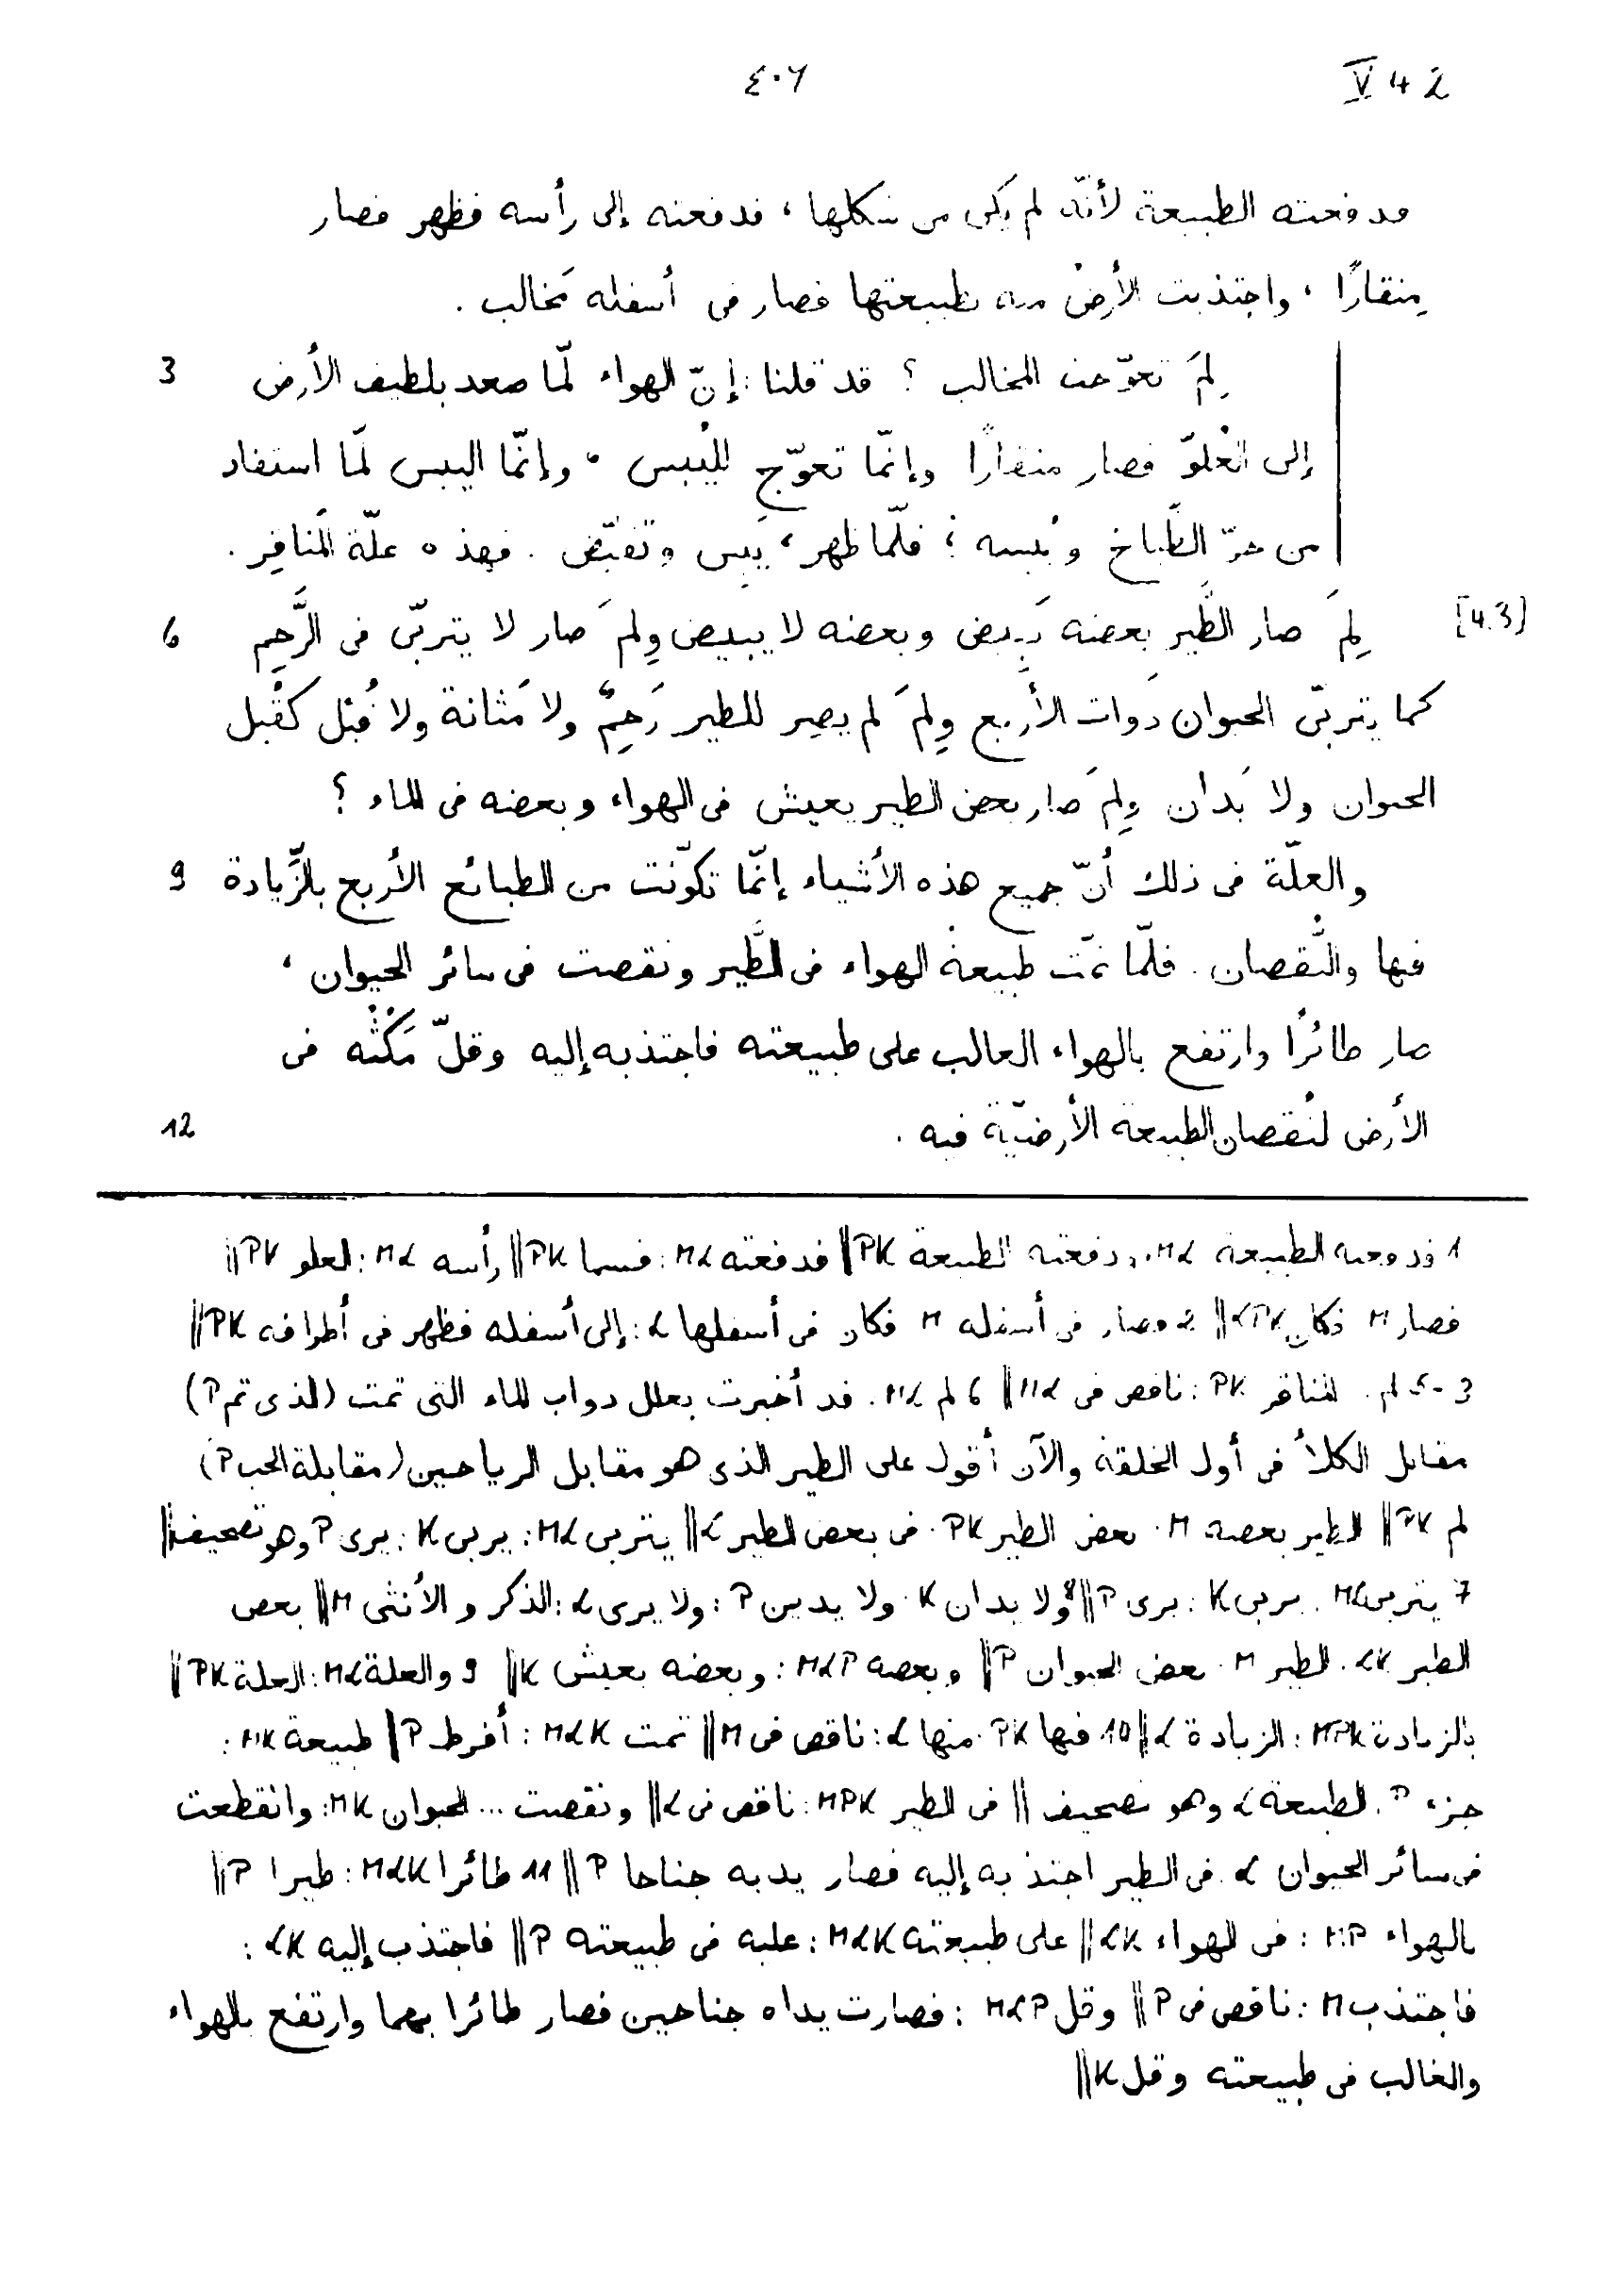 ٤٠٦ V 4 2
فدفعته الطبيعة لأنّه لم يكن من شكلها، فدفعته إلى رأسه فظهر فصار
مِنقارًا، واجتذبت الأرضُ منه بطبيعتها فصار فى أسفله مَخالب.
لِمَ تعوّجت المخالب؟ قد قلنا: إنّ الهواء لمّا صعد بلطيف الأرض 3
إلى العُلوّ فصار منقارًا وإنّما تعوّج لليُبس، وإنّما اليبس لمّا استفاد
من حرّ الطَّباخ ويُبسه؛ فلمّا ظهر، يَبِس وتقبّض. فهذه علّة المَناقِر.
[4.3] لِمَ صار الطَّير بعضه يَبِيض وبعضه لا يبيض ولِمَ صار لا يتربّى فى الرَّحِم 6
كما يتربّى الحيوان دَوات الأربع ولِمَ لم يصِر للطير رَحِمٌ ولا مَثانة ولا قُبْل كقُبل
الحيوان ولا بَدأن ولِمَ صار بعض الطير يعيش فى الهواء وبعضه فى الماء؟
والعلّة فى ذلك أنّ جميع هذه الأشياء إنّما تكوّنت من الطبائع الأربع بالزّيادة 9
فيها والنُّقصان. فلمّا تمّت طبيعةُ الهواء فى الطَّير ونقصت فى سائر الحيوان،
صار طائرًا وارتفع بالهواء الغالب على طبيعته فاجتذبه إليه وقلّ مَكْثُه فى
الأرض لنُقصان الطبيعة الأرضيّة فيه. 12
1 فدفعته الطبيعة Mα: دفعته الطبيعة PK || فدفعته Mα: فسما PK || رأسه Mα: العلو PK ||
فصار M فكان αPK || 2 فصار فى أسفله M فكان فى أسفلها α: إلى أسفله فظهر فى أطرافه PK ||
3-5 لم. المناقر PK: ناقص فى Mα || 6 لم Mα. قد أخبرت بعلل دواب الماء التى تمت (الذى تم P)
مقابل الكلأ فى أول الخلقة والآن أقول على الطير الذى هو مقابل الرياحين (مقابلة الحب P)
لم PK || الطير بعضه M. بعض الطير PK. فى بعض الطير α || يتربى Mα: يربى K: يرى P وهو تصحيف ||
7 يتربى Mα. يربى K: يرى P || 8 ولا بدان K. ولا يدين P: ولا يرى α: الذكر والأنثى M || بعض
الطير αK. الطير M. بعض الحيوان P || وبعضه MαP: وبعضه يعيش K || 9 والعلة Mα: العلة PK ||
بالزيادة MPK: الزيادة α || 10 فيها PK. منها α: ناقص فى M || تمت MαK: أفرط P || طبيعة MK:
جزء P. الطبيعة α وهو تصحيف || فى الطير MPK: ناقص فى α || ونقصت ... الحيوان MK: وانقطعت
فى سائر الحيوان α. فى الطير اجتذ به إليه فصار يد به جناحا P || 11 طائرا MαK: طيرا P ||
بالهواء MP: فى الهواء αK || على طبيعته MαK: عليه فى طبيعته P || فاجتذب إليه αK:
فاجتذب M: ناقص فى P || وقل MαP: فصارت يداه جناحين فصار طائرا بهما وارتفع بالهواء
والغالب فى طبيعته وقل K ||